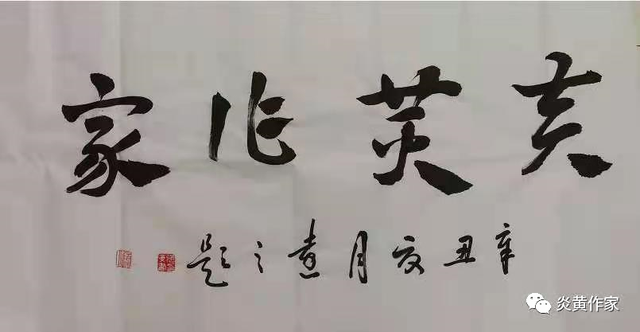 炎黄作家
辛丑夏月之题
炎黄作家